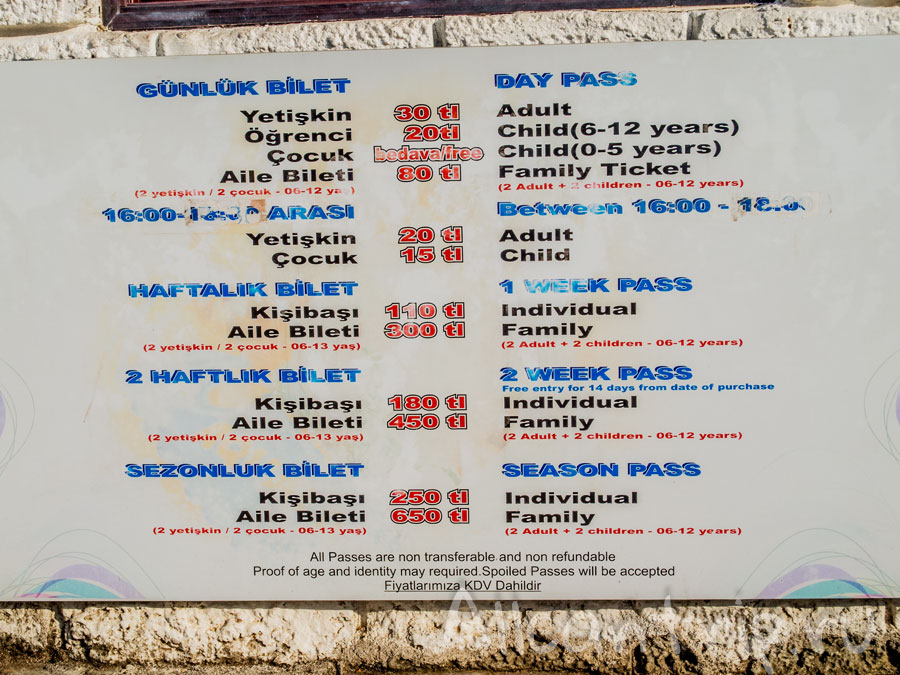 GÜNLÜK BİLET DAY PASS
Yetişkin 30 tl Adult
Öğrenci 20tl Child(6-12 years)
Çocuk bedava/free Child(0-5 years)
Aile Bileti 80 tl Family Ticket
(2 yetişkin / 2 çocuk - 06-12 yaş) (2 Adult + 2 children - 06-12 years)
16:00- ARASI Between 16:00 -
Yetişkin 20 tl Adult
Çocuk 15 tl Child
HAFTALIK BİLET 1 WEEK PASS
Kişibaşı 110 tl Individual
Aile Bileti 300 tl Family
(2 yetişkin / 2 çocuk - 06-13 yaş) (2 Adult + 2 children - 06-12 years)
2 HAFTLIK BİLET 2 WEEK PASS
Free entry for 14 days from date of purchase
Kişibaşı 180 tl Individual
Aile Bileti 450 tl Family
(2 yetişkin / 2 çocuk - 06-13 yaş) (2 Adult + 2 children - 06-12 years)
SEZONLUK BİLET SEASON PASS
Kişibaşı 250 tl Individual
Aile Bileti 650 tl Family
(2 yetişkin / 2 çocuk - 06-13 yaş) (2 Adult + 2 children - 06-12 years)
All Passes are non transferable and non refundable
Proof of age and identity may required.Spoiled Passes will be accepted
Fiyatlarımıza KDV Dahildir
Aticantrip.ru